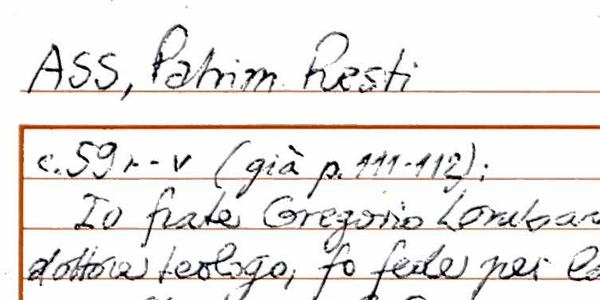 ASS, Patrim. Resti
c. 59 r - v (già p. 111-112):
Io frate Gregorio Lombar
dottore teologo, fo fede per